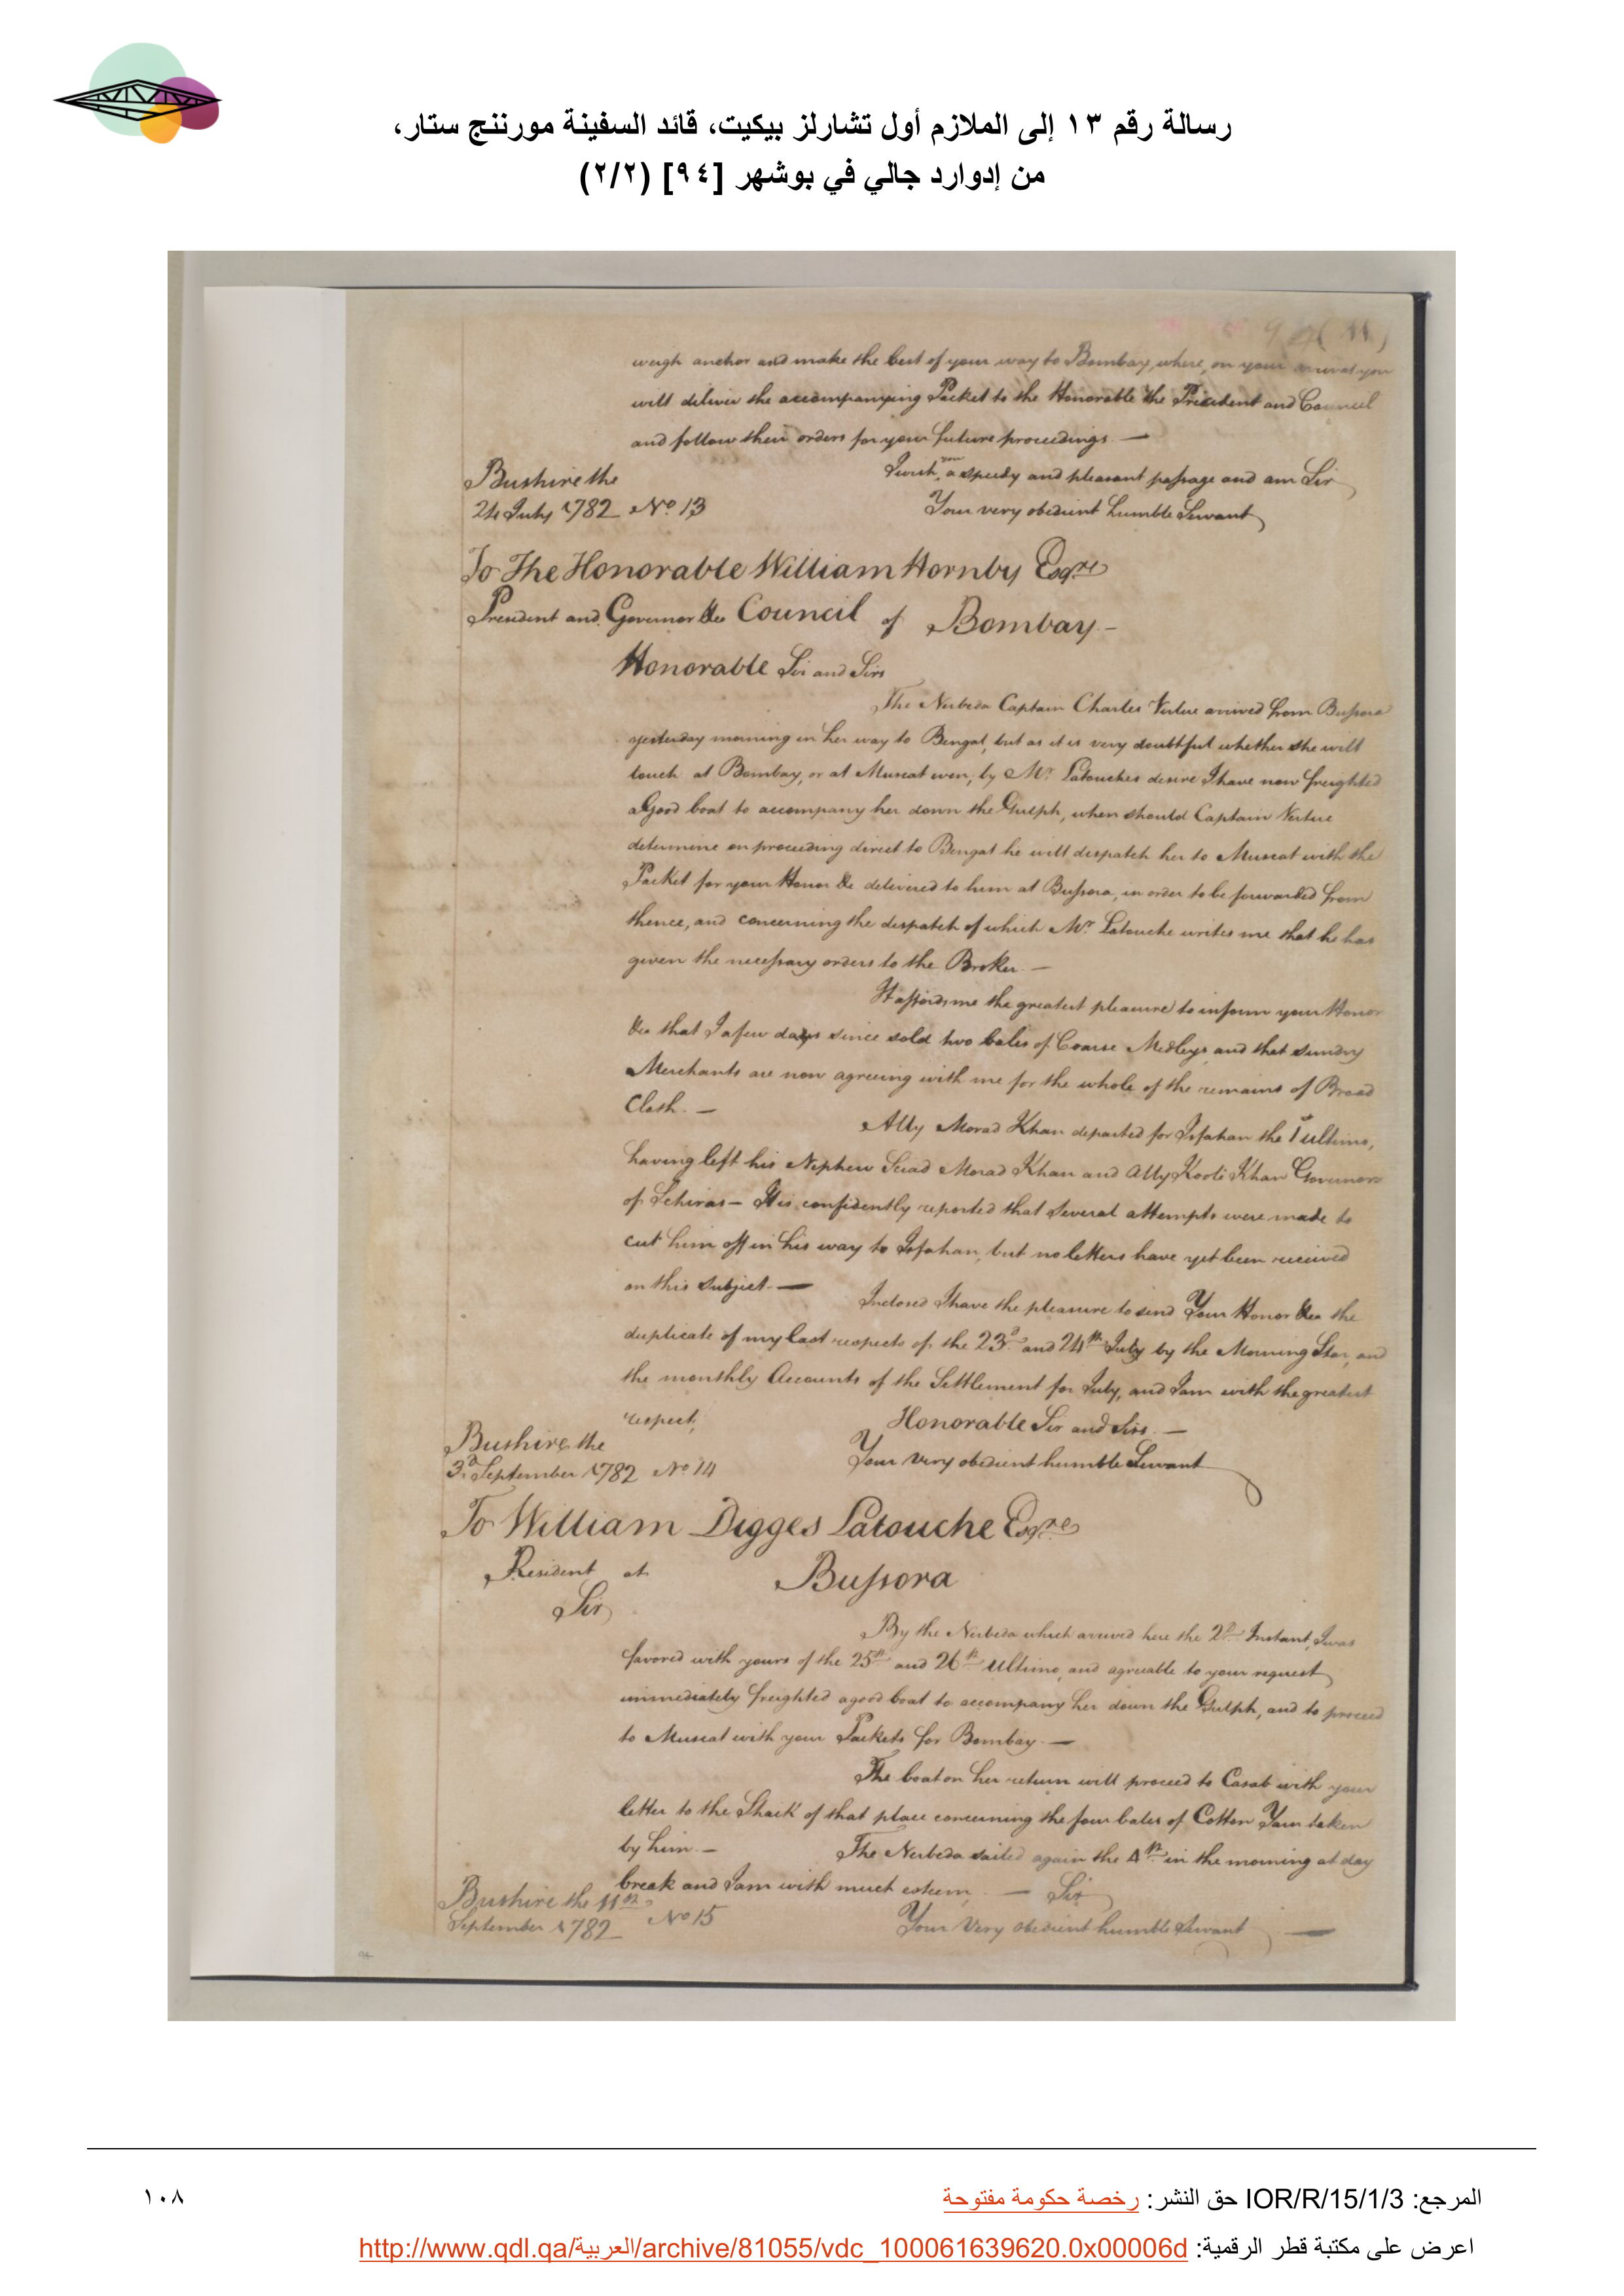 رسالة رقم ١٣ إلى الملازم أول تشارلز بيكيت، قائد السفينة مورننج ستار،
من إدوارد جالي في بوشهر [٩٤] (٢/٢)
weigh anchor and make the best of your way to Bombay, where, on your arrival you
will deliver the accompanying Packet to the Honorable the President and Council
and follow their orders for your future proceedings. —
I wish you a speedy and pleasant passage and am Sir
Bushire the
24 July 1782 No. 13
Your very obedient humble Servant
To The Honorable William Hornby Esqre
President and Governor &ca Council of Bombay -
Honorable Sir and Sirs
The Nerbeda Captain Charles Vertue arrived from Bussora
yesterday morning in her way to Bengal, but as it is very doubtful whether she will
touch at Bombay, or at Muscat even, by Mr. Latouches desire I have now freighted
a Good boat to accompany her down the Gulph, when should Captain Vertue
determine on proceeding direct to Bengal he will dispatch her to Muscat with the
Packet for your Honor &c delivered to him at Bussora, in order to be forwarded from
thence, and concerning the despatch of which Mr. Latouche writes me that he has
given the necessary orders to the Broker. —
It affords me the greatest pleasure to inform your Honor
&ca that I a few days since sold two bales of Coarse Medleys and that sundry
Merchants are now agreeing with me for the whole of the remains of Broad
Cloth. —
Ally Morad Khan departed for Isfahan the 1st ultimo,
having left his Nephew Seiad Morad Khan and Ally Kooli Khan Governors
of Schiras — It is confidently reported that several attempts were made to
cut him off in his way to Isfahan, but no letters have yet been received
on this subject. —
Inclosed I have the pleasure to send Your Honor &ca the
duplicate of my last respects of the 23d and 24th July by the Morning Star, and
the monthly Accounts of the Settlement for July, and I am with the greatest
respect,
Honorable Sir and Sirs. —
Bushire the
3d September 1782 No 14
Your very obedient humble Servant
To William Digges Latouche Esqre
Resident at Bussora
Sir
By the Nerbeda which arrived here the 2d Instant, I was
favored with yours of the 25th and 26th Ultimo, and agreeable to your request
immediately freighted a good boat to accompany her down the Gulph, and to proceed
to Muscat with your Packets for Bombay. —
The boat on her return will proceed to Casab with your
letter to the Shaik of that place concerning the four bales of Cotton Yarn taken
by him. — The Nerbeda sailed again the 4th in the morning at day
break and I am with much esteem, — Sir
Bushire the 11th
September 1782 No 15
Your Very obedient humble Servant —
94
المرجع: IOR/R/15/1/3 حق النشر: رخصة حكومة مفتوحة
١٠٨
اعرض على مكتبة قطر الرقمية: http://www.qdl.qa/العربية/archive/81055/vdc_100061639620.0x00006d